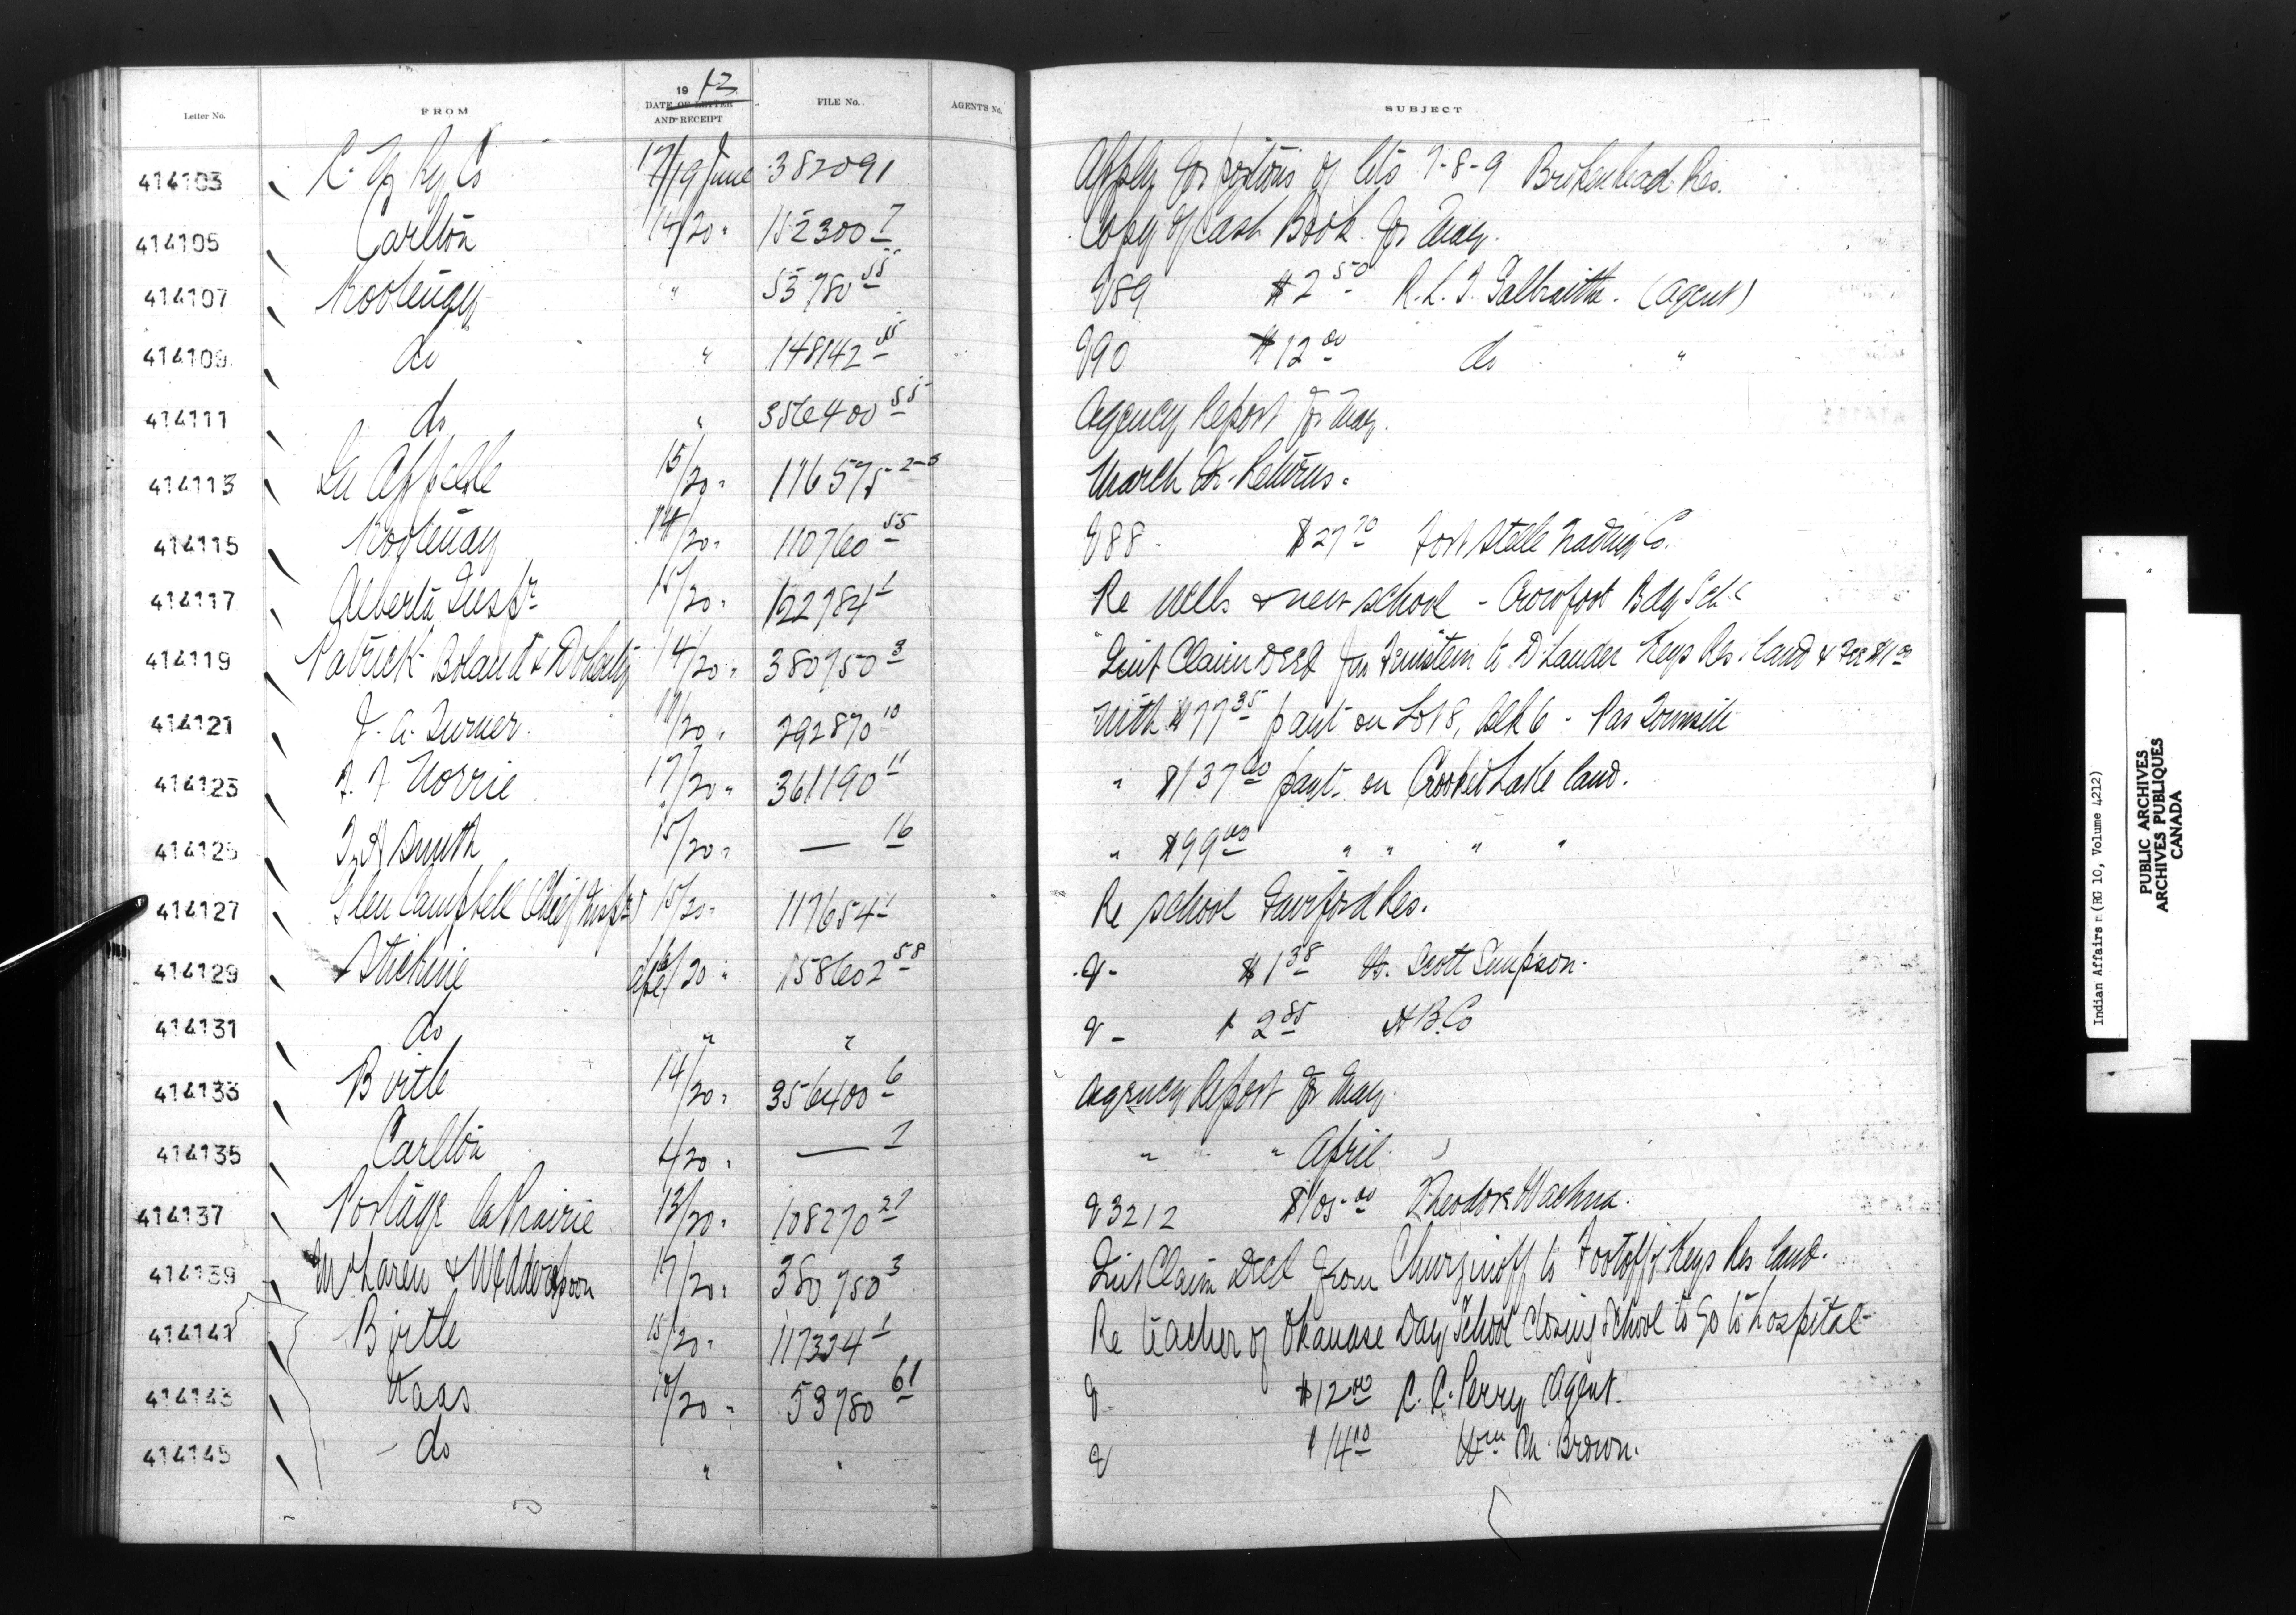 Letter No. FROM 1912 DATE OF LETTER AND RECEIPT FILE No. AGENT'S No. SUBJECT
414103 C. N. Ry Co 17/19 June 382091 Apply for portions of lots 7-8-9 Brokenhead Res.
414105 Carlton 14/20 " 152300 7 Copy of Cash Book for May.
414107 Kootenay " 53780 55 V89 $2 50 R. L. T. Galbraith. (Agent)
414109 do " 148142 55 V90 $12 00 do "
414111 do " 356400 55 Agency Report for May.
414113 Qu Appelle 15/20 " 116575 2-3 March Qr. Returns.
414115 Kootenay 14/20 " 110760 55 V88 $27 70 Fort Steele Trading Co.
414117 Alberta Inspr 15/20 " 122784 1 Re wells & new school - Crowfoot Bdg Sch
414119 Patrick Boland & Doherty 14/20 " 380750 3 Quit Claim Deed from to D Lander Keys Res. land & Fee $1 00
414121 J. A. Turner. /20 " 292870 10 With $77 35 paynt on Lot 8, Blk 6 - Pas Townsite
414123 F. F. Norrie 17/20 " 361190 11 " $137 60 paynt on Crooked Lake land.
414125 Smith 15/20 " — 16 " $99 00 " " " "
414127 Glen Campbell (Chief Inspr) 15/20 " 117654 1 Re school Fairford Res.
414129 Stickine /20 " 158602 58 V- $1 38 W. Scott Simpson.
414131 do " " V- $2 85 H B. Co
414133 Birtle 14/20 " 356400 6 Agency Report for May
414135 Carlton 4/20 " — 7 " " " April.
414137 Portage la Prairie 13/20 " 108270 21 V3212 $105 00 Theodore Wachna.
414139 McLaren & Widderspoon 17/20 " 380750 3 Quit Claim Deed from to Keys Res land.
414141 Birtle 15/20 " 117334 1 Re teacher of Okanase Day School closing school to go to hospital
414143 Naas 10/20 " 53780 61 V $12 00 C. C. Perry Agent.
414145 do " " V $14 10 Wm M. Brown.
Indian Affairs (RG 10, Volume 4212)
PUBLIC ARCHIVES
ARCHIVES PUBLIQUES
CANADA